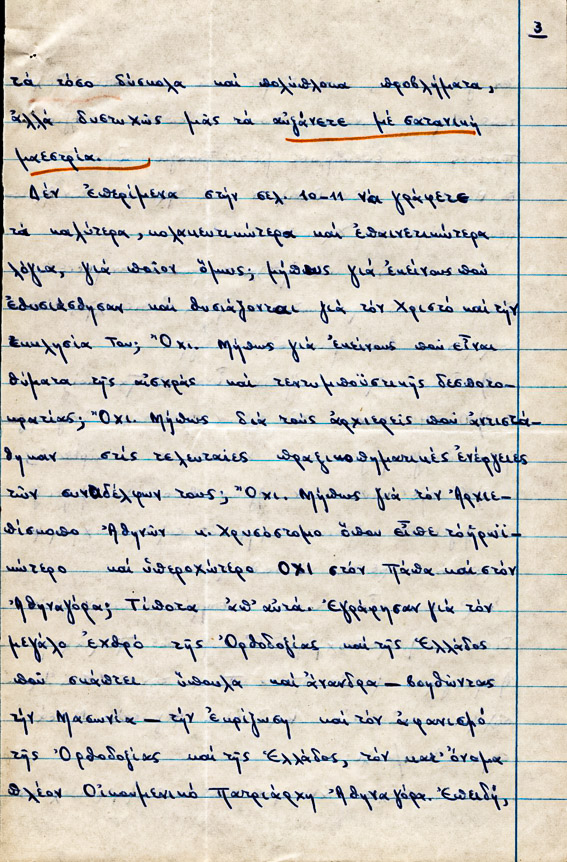 3
τά τόσο δύσκολα καί πολύπλοκα προβλήματα,
ἀλλά δυστυχῶς μᾶς τά αὐξάνετε μέ σατανική
μαεστρία.
Δέν ἐπερίμενα στήν σελ. 10-11 νά γράφετε
τά καλύτερα, κολακευτικώτερα καί ἐπαινετικώτερα
λόγια, γιά ποῖον ὅμως; μήπως γιά ἐκείνους πού
ἐθυσιάσθησαν καί θυσιάζονται γιά τόν Χριστό καί τήν
Ἐκκλησία Του; Ὄχι. Μήπως γιά ἐκείνους πού εἶναι
θύματα τῆς αἰσχρᾶς καί τεντυμποϋστικῆς δεσποτο-
κρατίας; Ὄχι. Μήπως διά τούς ἀρχιερεῖς πού ἀντιστά-
θηκαν στίς τελευταίες πραξικοπηματικές ἐνέργειες
τῶν συναδέλφων τους; Ὄχι. Μήπως γιά τόν Ἀρχιε-
πίσκοπο Ἀθηνῶν κ. Χρυσόστομο ὅπου εἶπε τό ἡρωϊ-
κώτερο καί ὑπεροχώτερο ΟΧΙ στόν Πάπα καί στόν
Ἀθηναγόρα; Τίποτα ἀπ' αὐτά. Ἐγράφησαν γιά τόν
μεγάλο ἐχθρό τῆς Ὀρθοδοξίας καί τῆς Ἑλλάδος
πού σκάπτει ὕπουλα καί ἄνανδρα – βοηθώντας
τήν Μασωνία – τήν ἐκρίζωση καί τόν ἀφανισμό
τῆς Ὀρθοδοξίας καί τῆς Ἑλλάδος, τόν κατ' ὄνομα
πλέον Οἰκουμενικό Πατριάρχη Ἀθηναγόρα. Ἐπειδή,